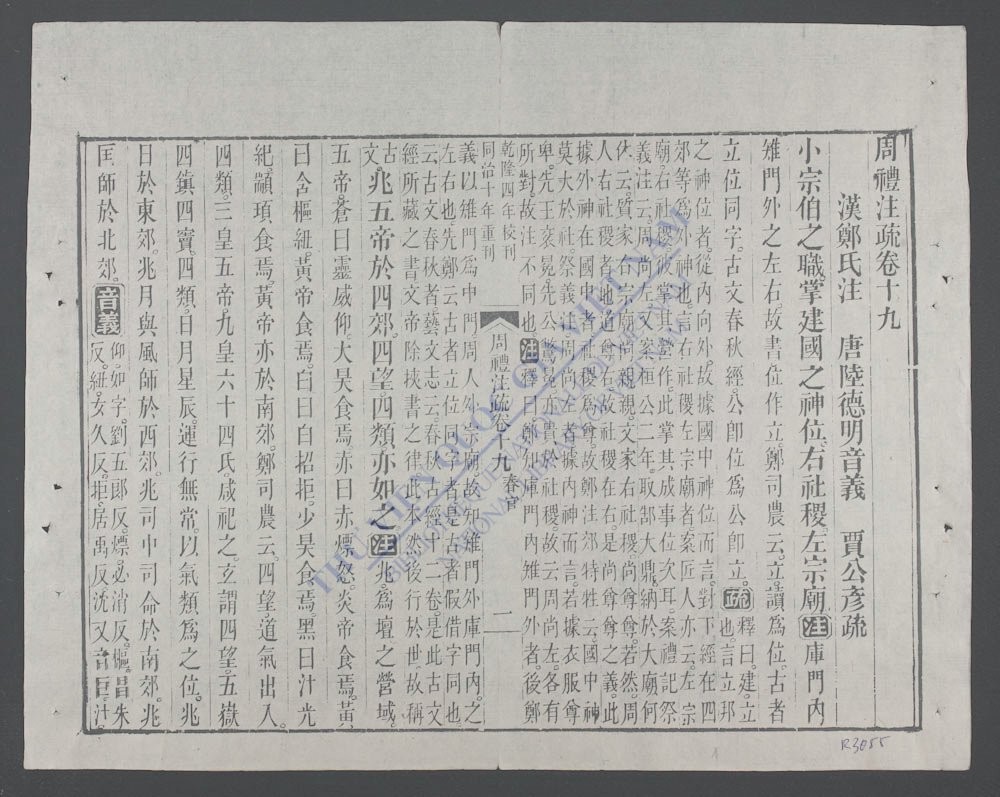 周禮注疏卷十九
漢鄭氏注 唐陸德明音義 賈公彥疏
小宗伯之職掌建國之神位。右社稷。左宗廟。注庫門內
雉門外之左右。故書位作立。鄭司農云。立讀為位。古者
立位同字。古文春秋經。公卽位為公卽立。疏釋曰。建立
也。言立邦
之神位者。從內向外。故據國中神位而言。對下經在四
郊等為外神也。言右社稷左宗廟者。案匠人亦云。左宗
廟右社稷。彼掌其營作。此掌其成事位次耳。案禮記祭
義注云。周尚左。又案桓公二年。取郜大鼎。納於大廟。何
休云。質家右宗廟。尚親親。文家右社稷。尚尊尊。若然。周
人右社稷者。地道尊右。故社稷在右。是尚尊尊之義。此
據外神在國中者。社稷為尊。故鄭注郊特牲云。國中神
莫大於社。祭義注周尚左者。據內神而言。若據衣服尊
卑。先王袞冕。先公鷩冕。亦貴於社稷。故云周尚左。各有
所對。故注不同也。注釋曰。鄭知庫門內雉門外者。後鄭
乾隆四年校刊
同治十年重刊
周禮注疏卷十九 春官 一
義以雉門為中門。周人外宗廟。故知雉門外庫門內之
左右也。先鄭云古者立位同字者。是古者假借字同也。
云古文春秋者。藝文志云。春秋古經十二卷。是此古文
經所藏之書。文帝除挾書之律。此本然後行於世。故稱
古文。兆五帝於四郊。四望。四類亦如之。注兆。為壇之營域。
五帝。蒼曰靈威仰。大昊食焉。赤曰赤熛怒。炎帝食焉。黃
曰含樞紐。黃帝食焉。白曰白招拒。少昊食焉。黑曰汁光
紀。顓頊食焉。黃帝亦於南郊。鄭司農云。四望。道氣出入。
四類。三皇五帝。九皇六十四氏。咸祀之。玄謂四望。五嶽
四鎮四竇。四類。日月星辰。運行無常。以氣類為之位。兆
日於東郊。兆月與風師於西郊。兆司中司命於南郊。兆
雨師於北郊。音義仰。如字。劉五郎反。熛。必消反。樞。昌朱
反。紐。女久反。拒。居禹反。沈又音巨。汁
THƯ VIỆN QUỐC GIA VIỆT NAM
BIBLIOTHÈQUE NATIONALE DU VIETNAM
NATIONAL LIBRARY OF VIETNAM
R3055